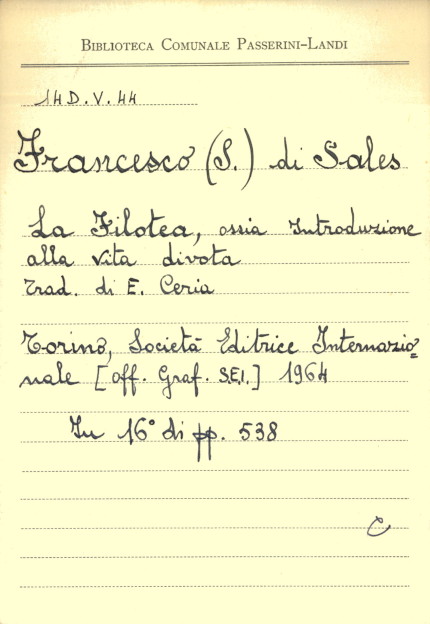 BIBLIOTECA COMUNALE PASSERINI-LANDI
14D.V.44
Francesco (S.) di Sales
La Filotea, ossia Introduzione
alla vita divota
Trad. di E. Ceria
Torino, Società Editrice Internazio=
nale [off. Graf. S.E.I.] 1964
In 16° di pp. 538
C